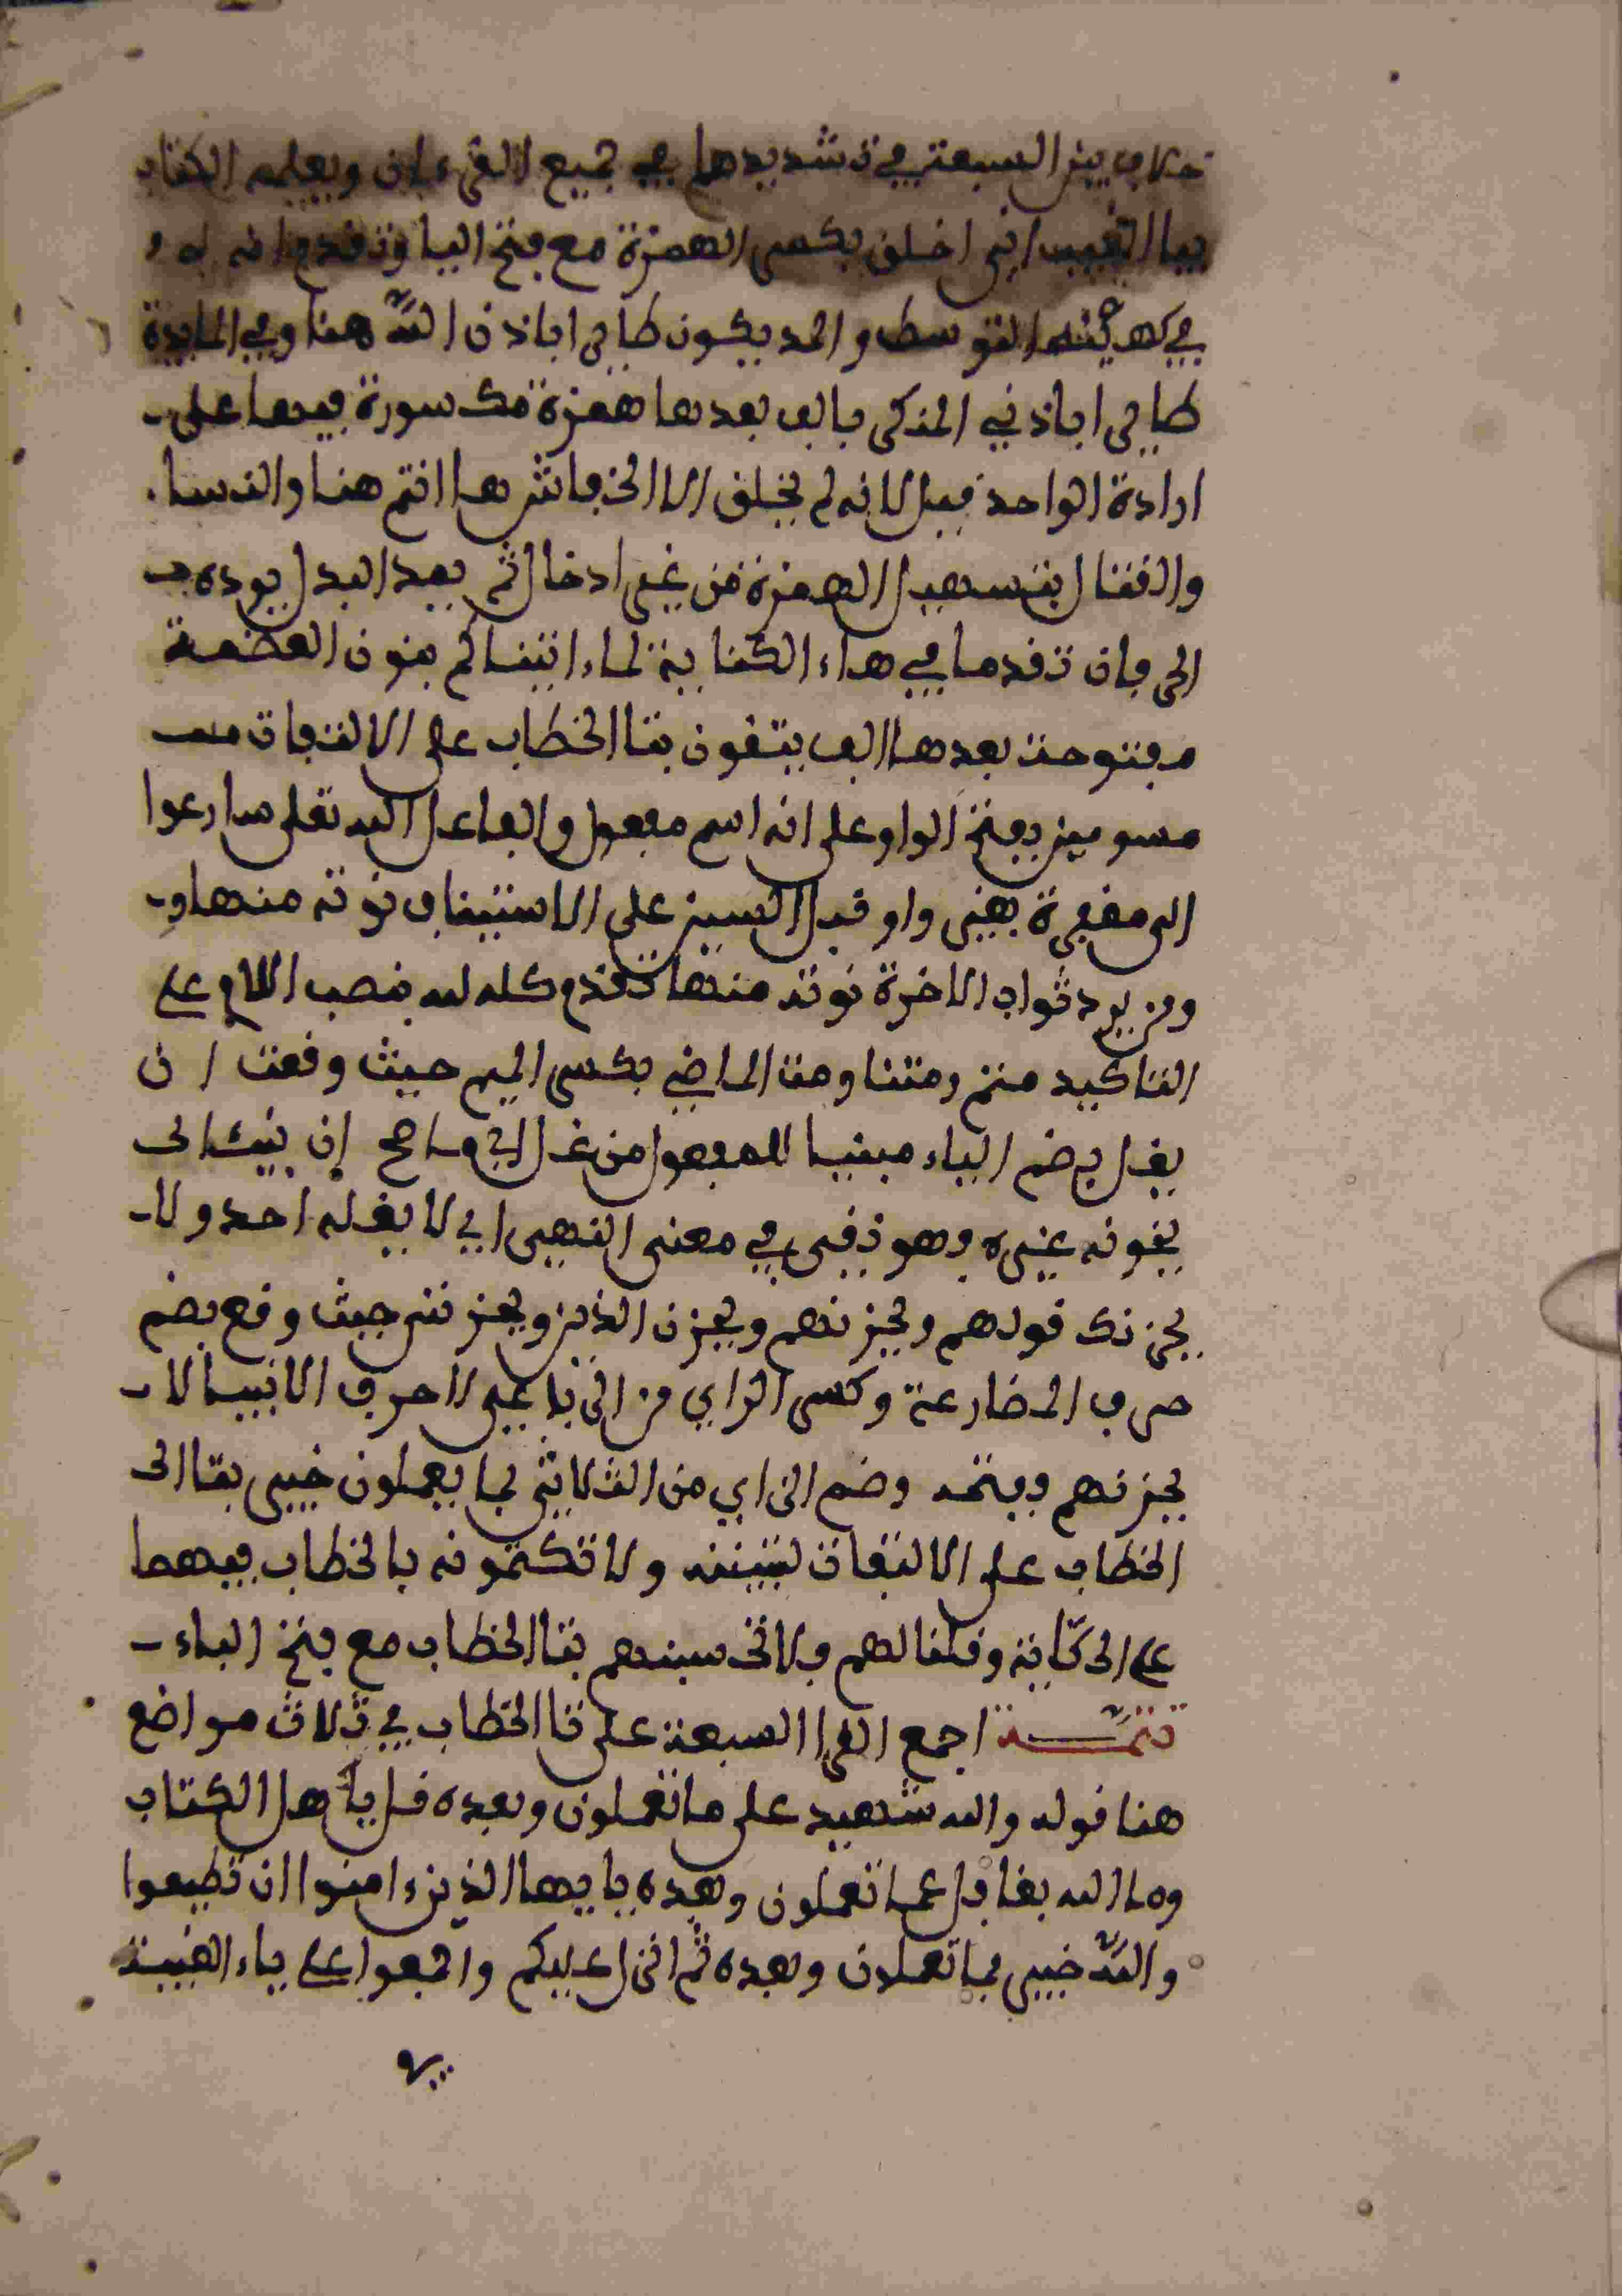 خلاف بين السبعة في تشديدها في جميع القرءان ويعلمه الكتاب
بيا الغيب اني اخلق بكسر الهمزة مع فتح اليا وتقدم انه له و
في كهيئة التوسط والمد فيكون طائرا باذن الله هنا وفي المايدة
طائرا باذني المذكر بالف بعدها همزة مكسورة فيهما على
ارادة الواحد قيل لانه لم يخلق الا الخفاش ها انتم هنا والنسا
والقتال بتسهيل الهمزة من غير ادخال ثم بعد البدل يوده
الى فان تقدما في هاء الكناية لماء اتيناكم بنون العضمة
مفتوحة بعدها الف يبتغون بتا الخطاب على الالتفات
مسومين بفتح الواو على انه اسم مفعول والفاعل الله تعلى سارعوا
الى مغفرة بغير واو قبل السين على الاستيناف نوته منها و
ومن يرد ثواب الاخرة نوته منها تقدم كله لله بنصب اللام على
التاكيد متم ومتنا ومت الماضي بكسر الميم حيث وقعت ان
يغل بضم الياء مبنيا للمفعول من غل اي ما صح لنبي ان
يخونه غيره وهو نفي في معنى النهي اي لا يغله احد ولا
يحزنك قولهم ويحزنهم ويحزن الذين ويحزنني حيث وقع بضم
حرف المضارعة وكسر الزاي من الرباعي الا حرف الانبيا لا
يحزنهم فبفتحه وضم الزاي من الثلاثي بما يعملون خبير بتا
الخطاب على الالتفات لتبيننه ولا تكتمونه بالخطاب فيهما
على الحكاية وقلنا لهم ولا تحسبنهم بتا الخطاب مع فتح الباء
تتمــة اجمع القرا السبعة على تا الخطاب في ثلاث مواضع
هنا قوله والله شهيد على ما تعملون وبعده قل ياهل الكتاب
وما الله بغافل عما تعملون وبعده يايها الذين ءامنوا ان تطيعوا
والله خبير بما تعملون وبعده ثم انزل عليكم واجمعوا على ياء الغيبة